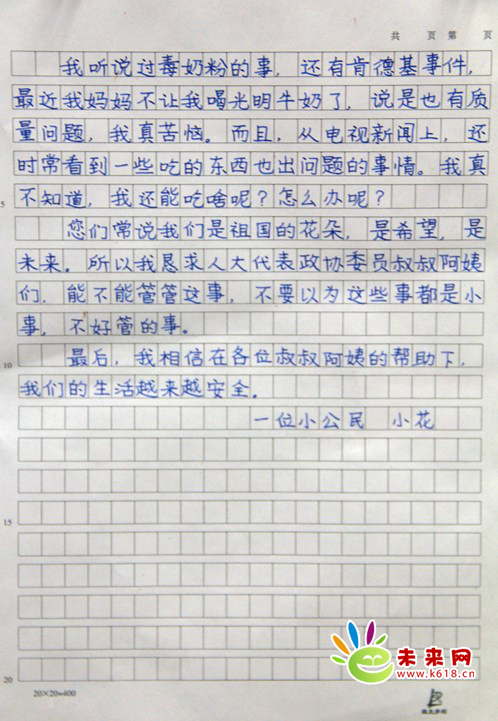 共 页 第 页
我听说过毒奶粉的事，还有肯德基事件，
最近我妈妈不让我喝光明牛奶了，说是也有质
量问题，我真苦恼。而且，从电视新闻上，还
时常看到一些吃的东西也出问题的事情。我真
5
不知道，我还能吃啥呢？怎么办呢？
您们常说我们是祖国的花朵，是希望，是
未来。所以我恳求人大代表政协委员叔叔阿姨
们，能不能管管这事，不要以为这些事都是小
事，不好管的事。
10
最后，我相信在各位叔叔阿姨的帮助下，
我们的生活越来越安全。
一位小公民 小花
15
20
20×20=400
未来网
www.k618.cn